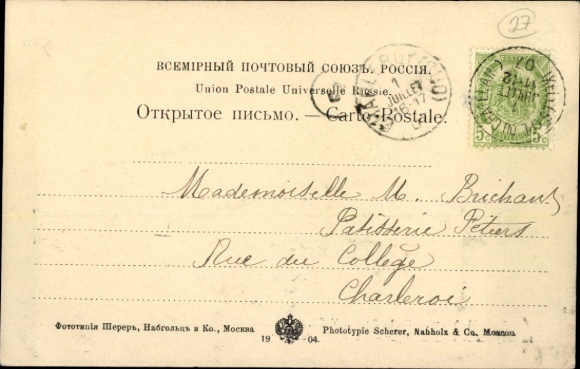 27
ВСЕМІРНЫЙ ПОЧТОВЫЙ СОЮЗЪ. РОССІЯ.
Union Postale Universelle Russie.
Открытое письмо. — Carte Postale.
JUILLET
JUILLET
5c 5c
Mademoiselle M. Brichaut
Patisserie Péters
Rue du Collège
Charleroi
Фототипія Шереръ, Набгольцъ и Ко., Москва
1904.
Phototypie Scherer, Nabholz & Co. Moscou